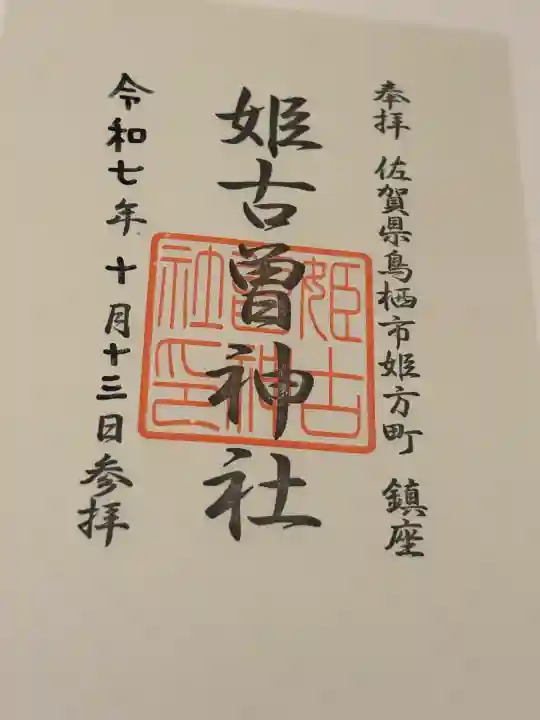 奉拝 佐賀県鳥栖市姫方町 鎮座
姫古曽神社
姫古曽神社印
令和七年 十月十三日参拝